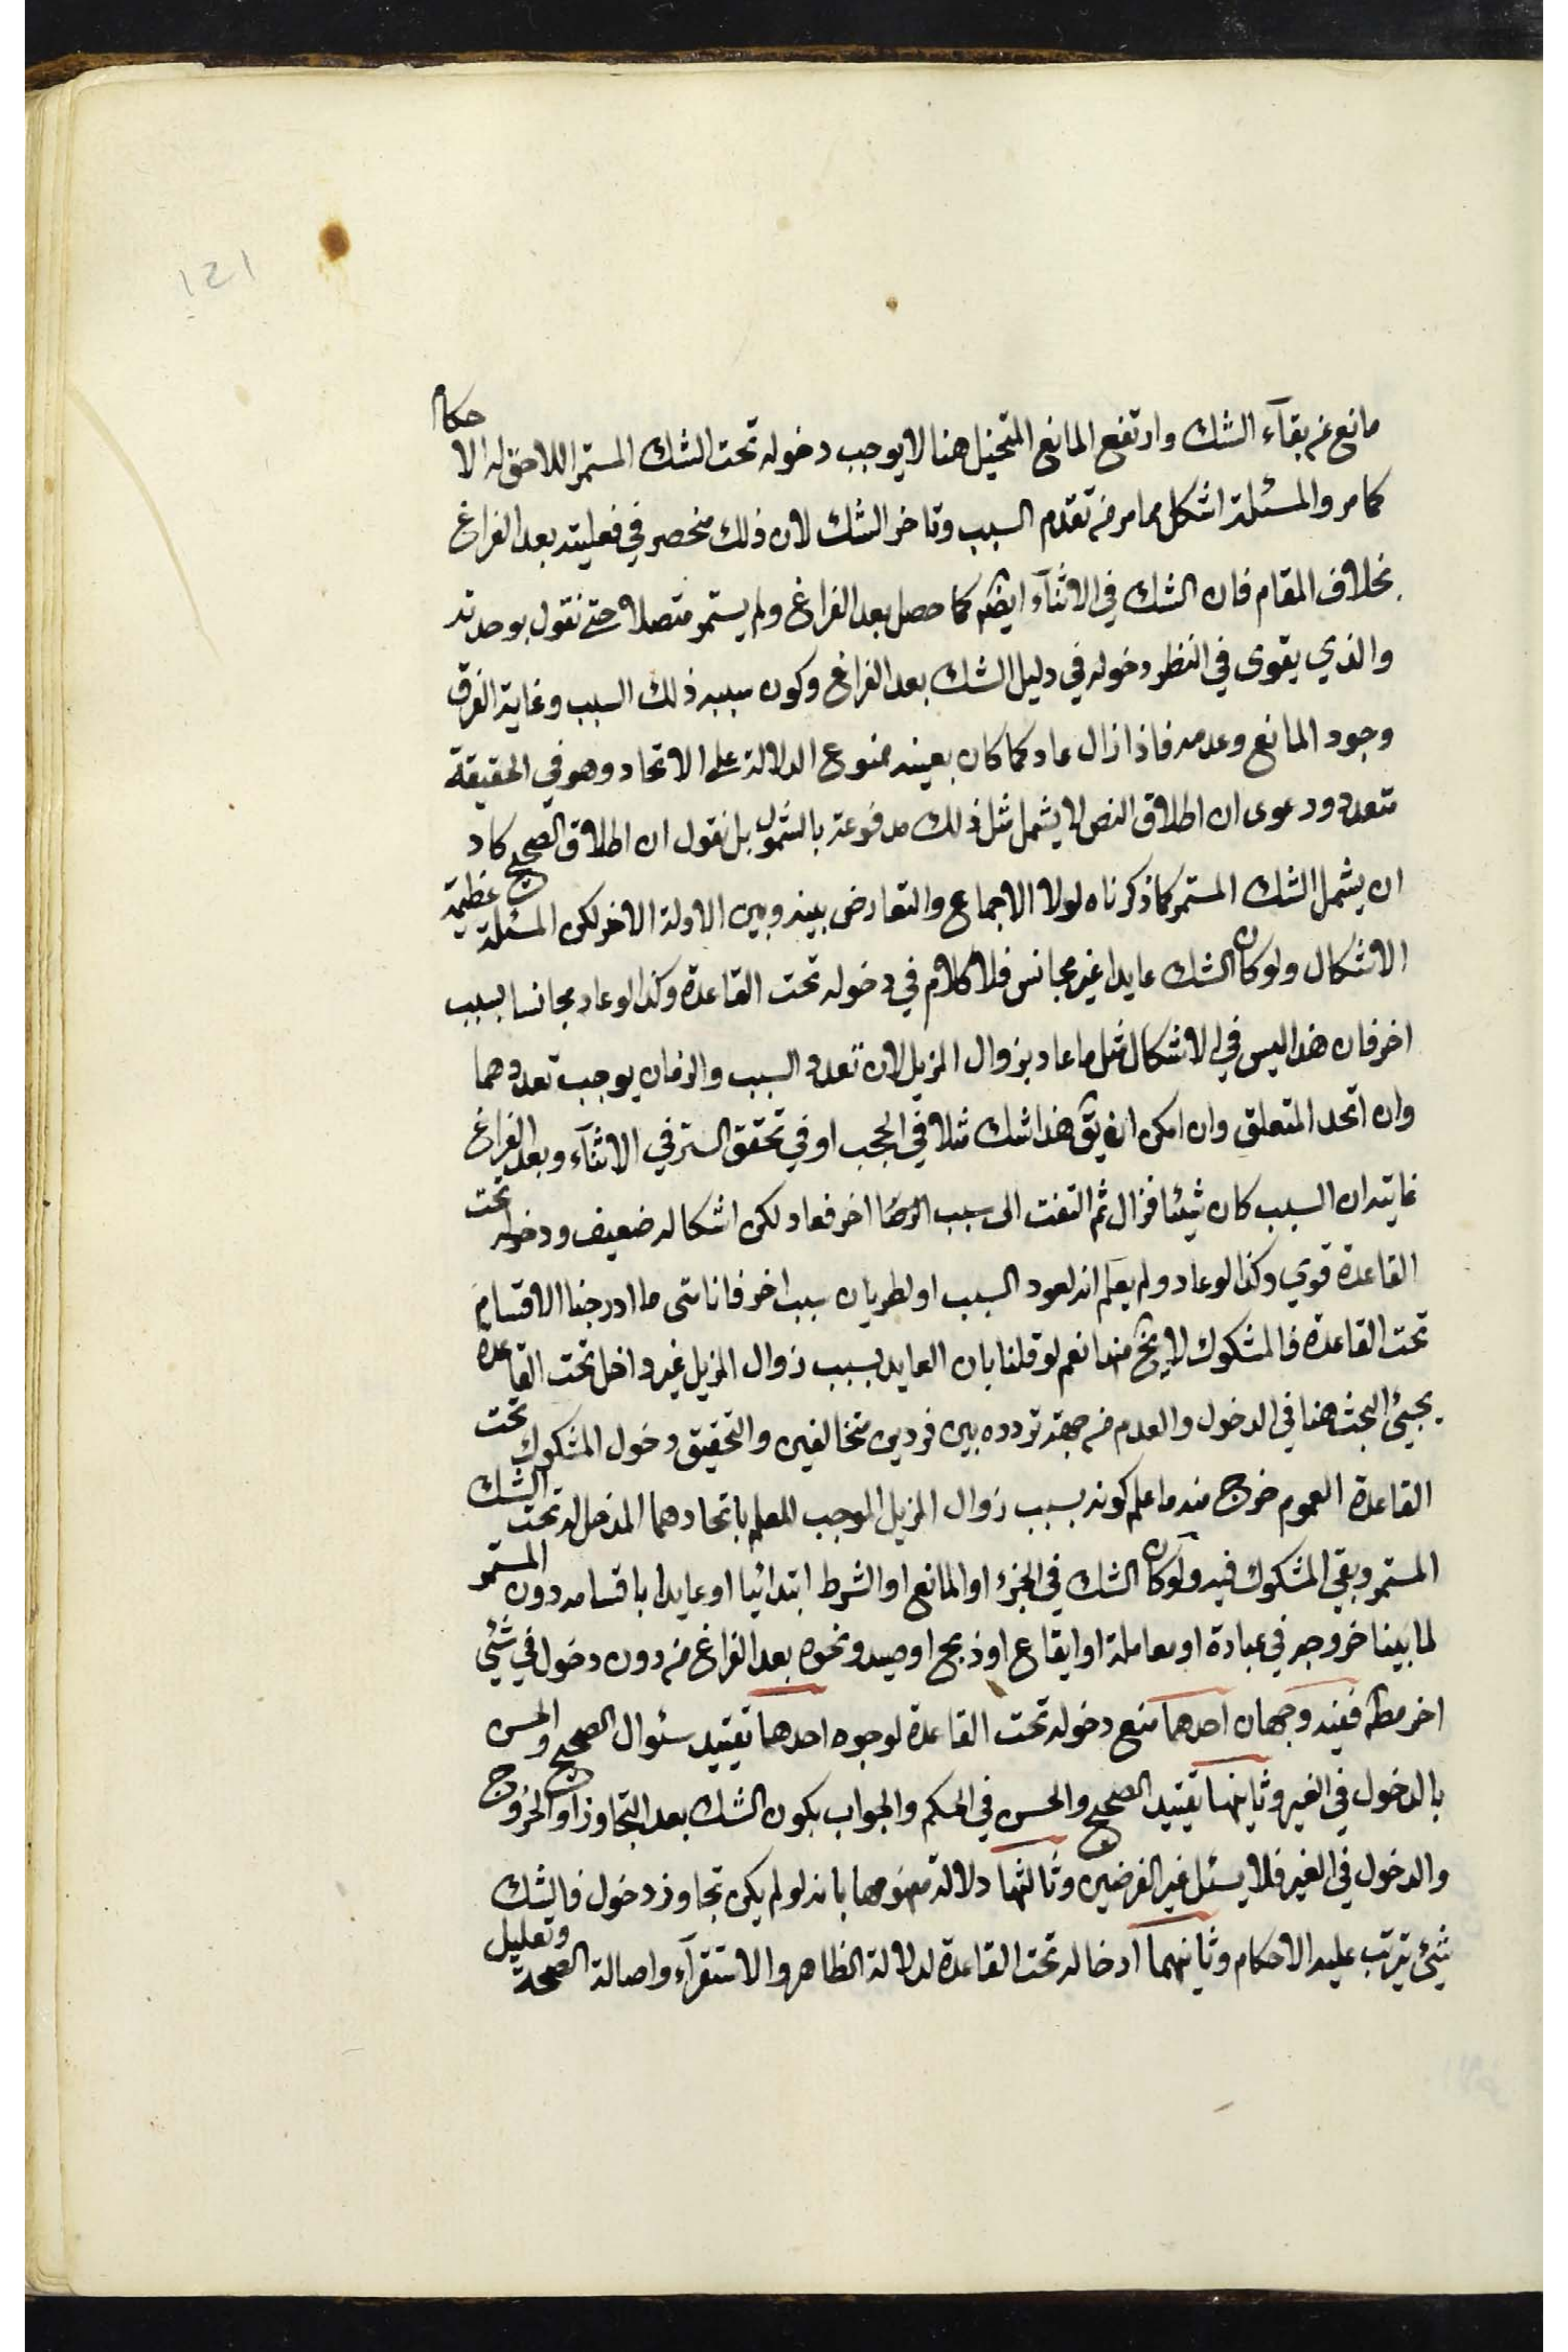 121
مانع عن بقآء الشك وارتفع المانع المتخيل هنا لا يوجب دخوله تحت الشك المستمر اللاحق له الاحكام
كما مر والمسئلة اشكل مما مر من تقدم السبب وتاخر الشك لان ذلك منحصر في فعليته بعد الفراغ
بخلاف المقام فان الشك في الاثنآء ايضًا كما حصل بعد الفراغ ولم يستمر متصلا حتى نقول بوحدته
والذي يقوى في النظر دخوله في دليل الشك بعد الفراغ وكون سببه ذلك السبب وغاية الفرق
وجود المانع وعدمه فاذا زال عاد كما كان بعينه ممنوع الدلالة على الاتحاد وهو في الحقيقة
متعدد ودعوى ان اطلاق النص لا يشمل مثل ذلك مدفوعة بالشمول بل نقول ان اطلاق الصحيح كاد
ان يشمل الشك المستمر كما ذكرناه لولا الاجماع والتعارض بينه وبين الادلة الاخر لكن المسئلة عظيمة
الاشكال ولو كان الشك عايدا غير مجانس فلا كلام في دخوله تحت القاعدة وكذا لو عاد مجانسا بسبب
اخر فان هذا ليس في الاشكال مثل ما عاد بزوال المزيل لان تعدد السبب والزمان يوجب تعددهما
وان اتحد المتعلق وان امكن ان يق هذا شك مثلا في الحجب او في تحقق الستر في الاثنآء وبعد الفراغ
غايته ان السبب كان شيئا فزال ثم التفت الى سبب اخر فعاد لكن اشكاله ضعيف ودخوله تحت
القاعدة قوي وكذا لو عاد ولم يعلم انه لعود السبب او لطريان سبب اخر فانا متى ما ادرجنا الاقسام
تحت القاعدة فالمشكوك لا يخ منها نعم لو قلنا بان العايد بسبب زوال المزيل غير داخل تحت القاعدة
يجيئ البحث هنا في الدخول والعدم من جهة تردده بين فردين متخالفين والتحقيق دخول المشكوك تحت
القاعدة العموم خرج منه ما علم كونه بسبب زوال المزيل الموجب للعلم باتحادهما المدخل له تحت الشك
المستمر وبقي المشكوك فيه ولو كان الشك في الجزء او المانع او الشرط ابتدائيا او عايدا باقسامه دون المستمر
لما بينا خروجه في عبادة او معاملة او ايقاع او ذبح او صيد ونحوه بعد الفراغ من دون دخول في شئي
اخر مطلقًا ففيه وجهان احدهما منع دخوله تحت القاعدة لوجوه احدها تقييد سئوال الصحيح والحسن
بالدخول في الغير وثانيها تقييد الصحيح والحسن في الحكم والجواب بكون الشك بعد التجاوز او الخروج
والدخول في الغير فلا يسئل غير الفرضين وثالثها دلالة مفهومها بانه لو لم يكن تجاوز دخول فالشك
شيئ يترتب عليه الاحكام وثانيهما ادخاله تحت القاعدة لدلالة الظاهر والاستقرآء واصالة الصحة وتعليل